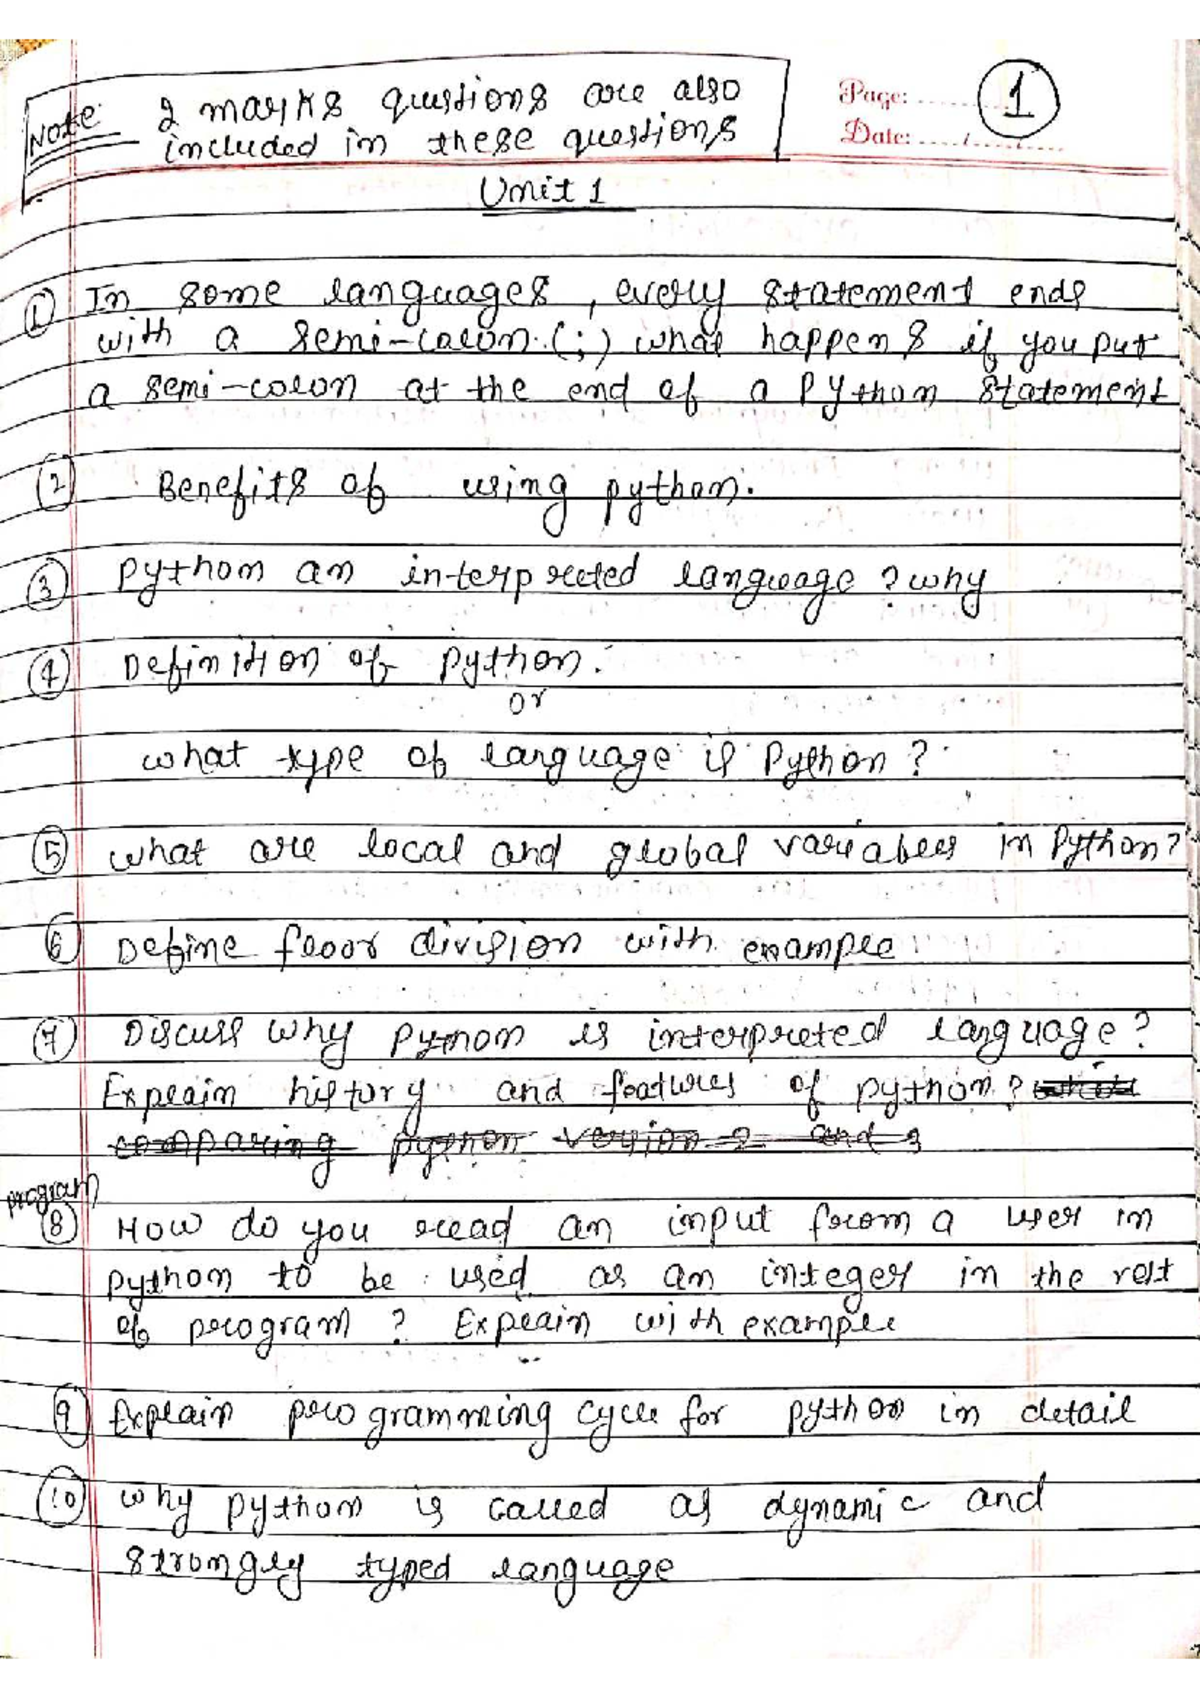 Note: 2 marks questions are also
included in these questions
Page: ........ 1
Date: ..../..../....
Unit 1
① In some languages, every statement ends
with a semi-colon. (;) what happens if you put
a semi-colon at the end of a Python statement
② Benefits of using python.
③ Python an interpreted language? why
④ Definition of Python.
or
what type of language is Python?
⑤ what are local and global variables in Python?
⑥ Define floor division with example
⑦ Discuss why Python is interpreted language?
Explain history and features of python? while
comparing python version 2 and 3
program
⑧ How do you read an input from a user in
python to be used as an integer in the rest
of program? Explain with example
⑨ Explain programming cycle for python in detail
⑩ why python is called as dynamic and
strongly typed language